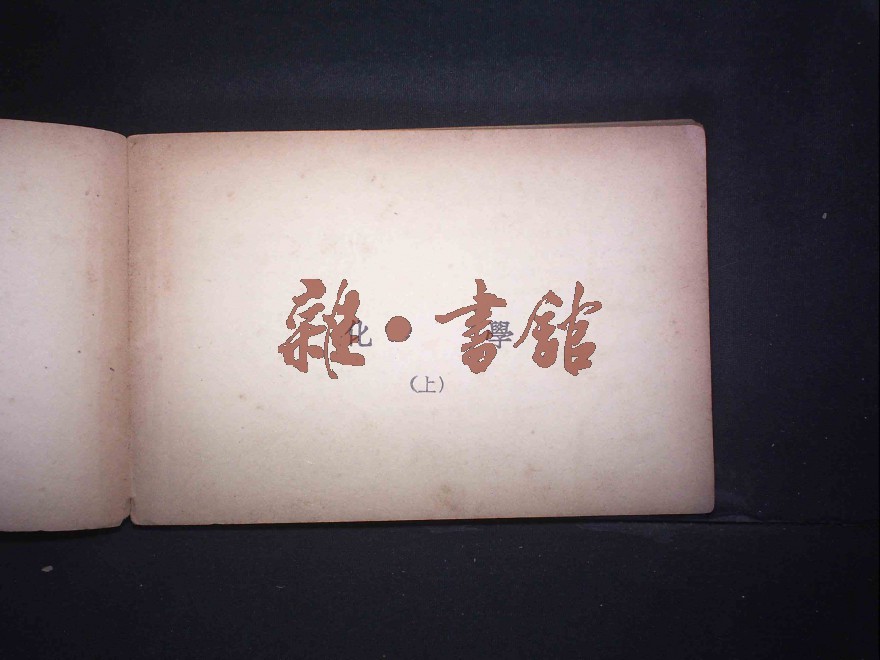 雜·書館
化學
（上）